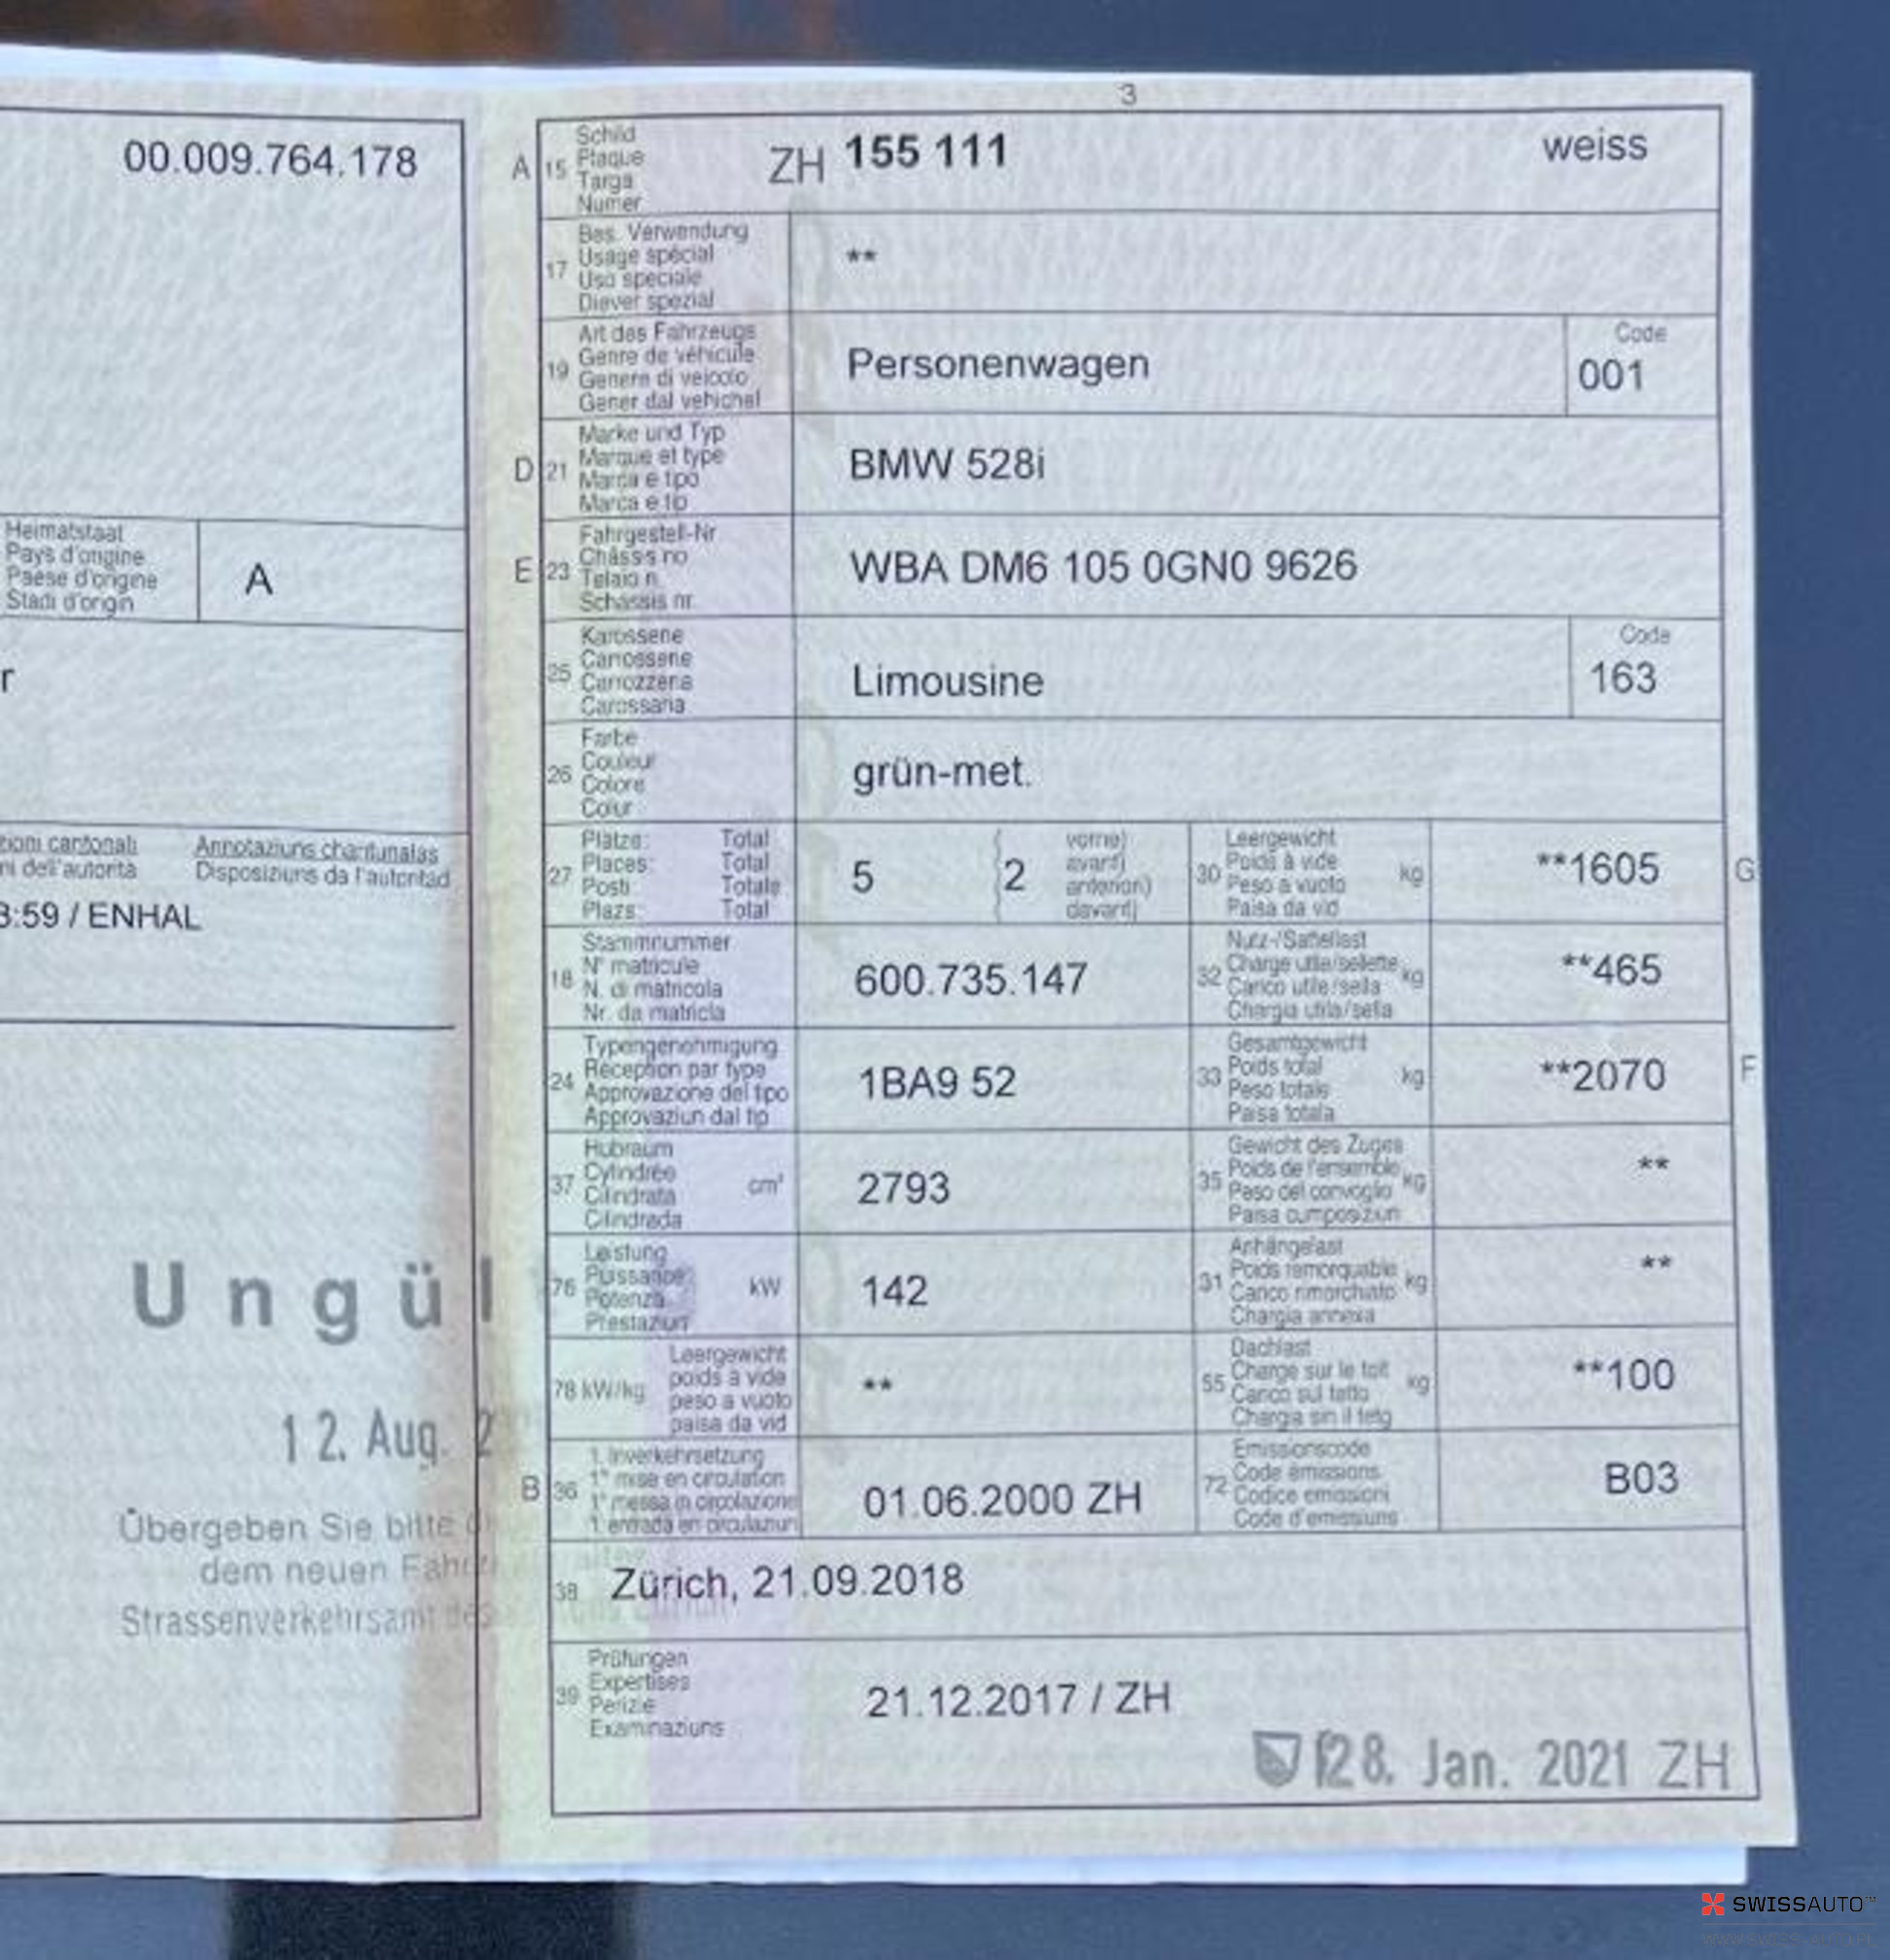 3
00.009.764.178
Heimatstaat
Pays d'origine
Paese d'origine
Stadi d'origin
A
r
zioni cantonali
ni dell'autorità
Annotaziuns chantunalas
Disposiziuns da l'autoritad
3:59 / ENHAL
Ungül
12. Aug. 2
Übergeben Sie bitte
dem neuen Fahr
Strassenverkehrsamt des
A 15
Schild
Plaque
Targa
Numer
ZH 155 111
weiss
17
Bes. Verwendung
Usage spécial
Uso speciale
Diever spezial
**
19
Art des Fahrzeugs
Genre de véhicule
Genere di veicolo
Gener dal vehichel
Personenwagen
Code
001
D 21
Marke und Typ
Marque et type
Marca e tipo
Marca e tip
BMW 528i
E 23
Fahrgestell-Nr
Châssis no
Telaio n.
Schassis nr.
WBA DM6 105 0GN0 9626
25
Karosserie
Carrosserie
Carrozzeria
Carossaria
Limousine
Code
163
26
Farbe
Couleur
Colore
Colur
grün-met.
27
Plätze: Total
Places: Total
Posti Totale
Plazs: Total
5
2
vorne)
avant)
anteriori)
davant)
30
Leergewicht
Poids à vide
Peso a vuoto
Paisa da vid
kg
**1605
G
18
Stammnummer
N° matricule
N. di matricola
Nr. da matricla
600.735.147
32
Nutz-/Sattellast
Charge utile/sellette
Carico utile/sella
Chargia utila/sella
kg
**465
24
Typengenehmigung
Réception par type
Approvazione del tipo
Approvaziun dal tip
1BA9 52
33
Gesamtgewicht
Poids total
Peso totale
Paisa totala
kg
**2070
F
37
Hubraum
Cylindrée
Cilindrata
Cilindrada
cm³
2793
35
Gewicht des Zuges
Poids de l'ensemble
Peso del convoglio
Paisa cumposiziun
kg
**
76
Leistung
Puissance
Potenza
Prestaziun
kW
142
31
Anhängelast
Poids remorquable
Carico rimorchiato
Chargia annexa
kg
**
78 kW/kg
Leergewicht
poids à vide
peso a vuoto
paisa da vid
**
55
Dachlast
Charge sur le toit
Carico sul tetto
Chargia sin il tetg
kg
**100
B 36
1. Inverkehrsetzung
1re mise en circulation
1a messa in circolazione
1. entrada en circulaziun
01.06.2000 ZH
72
Emissionscode
Code émissions
Codice emissioni
Code d'emissiuns
B03
38
Zürich, 21.09.2018
39
Prüfungen
Expertises
Perizie
Examinaziuns
21.12.2017 / ZH
28. Jan. 2021 ZH
SWISSAUTO™
WWW.SWISS-AUTO.PL